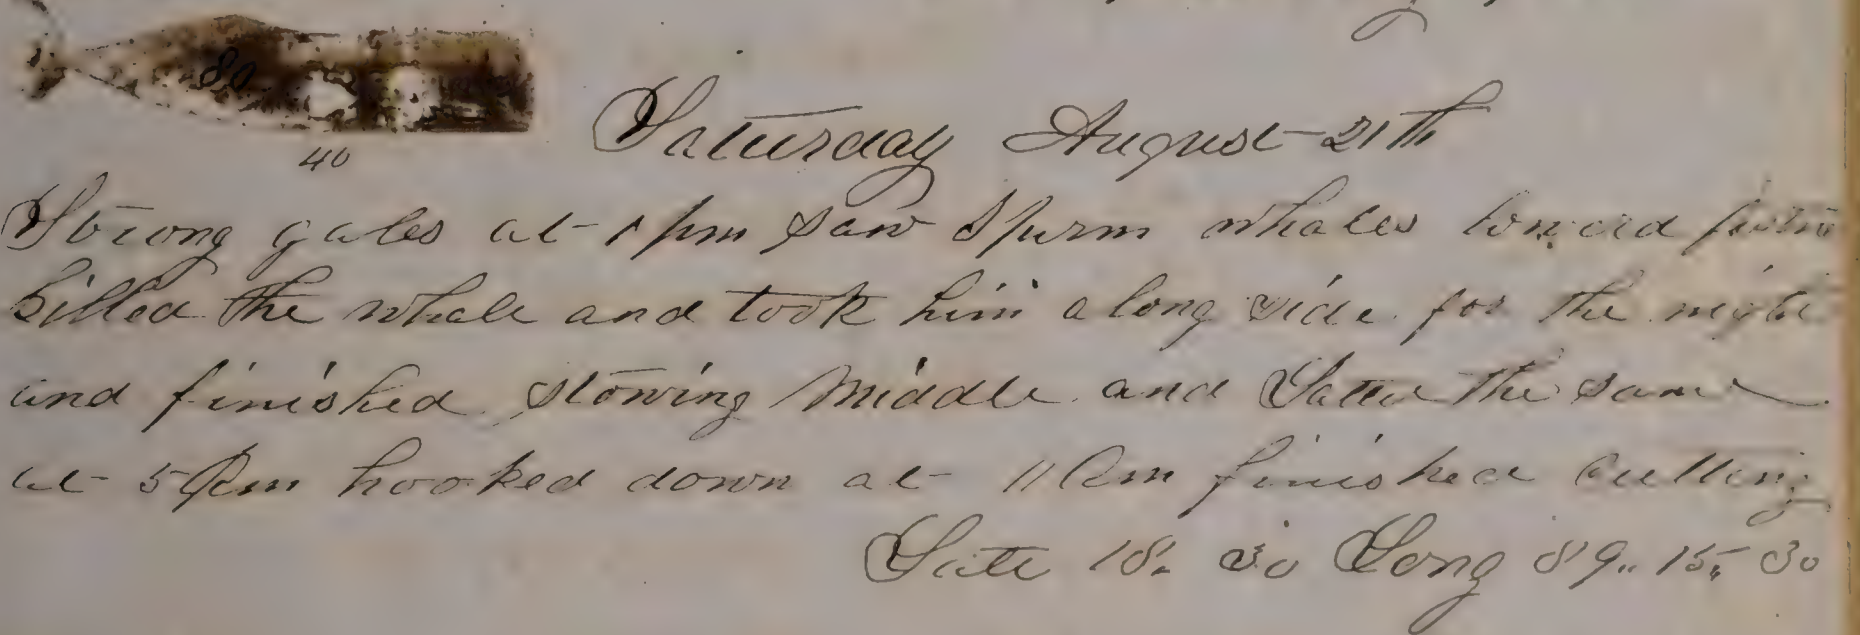 80
40
Saturday August 21th
Strong gales at 1 pm saw Spurm whales lowerd
killed the whale and took him along side for the night
and finished stowing Middle and Latter the same
at 5 Am hooked down at 11 Am finished cutting
Late 18. 30 Long 89.. 15, 30